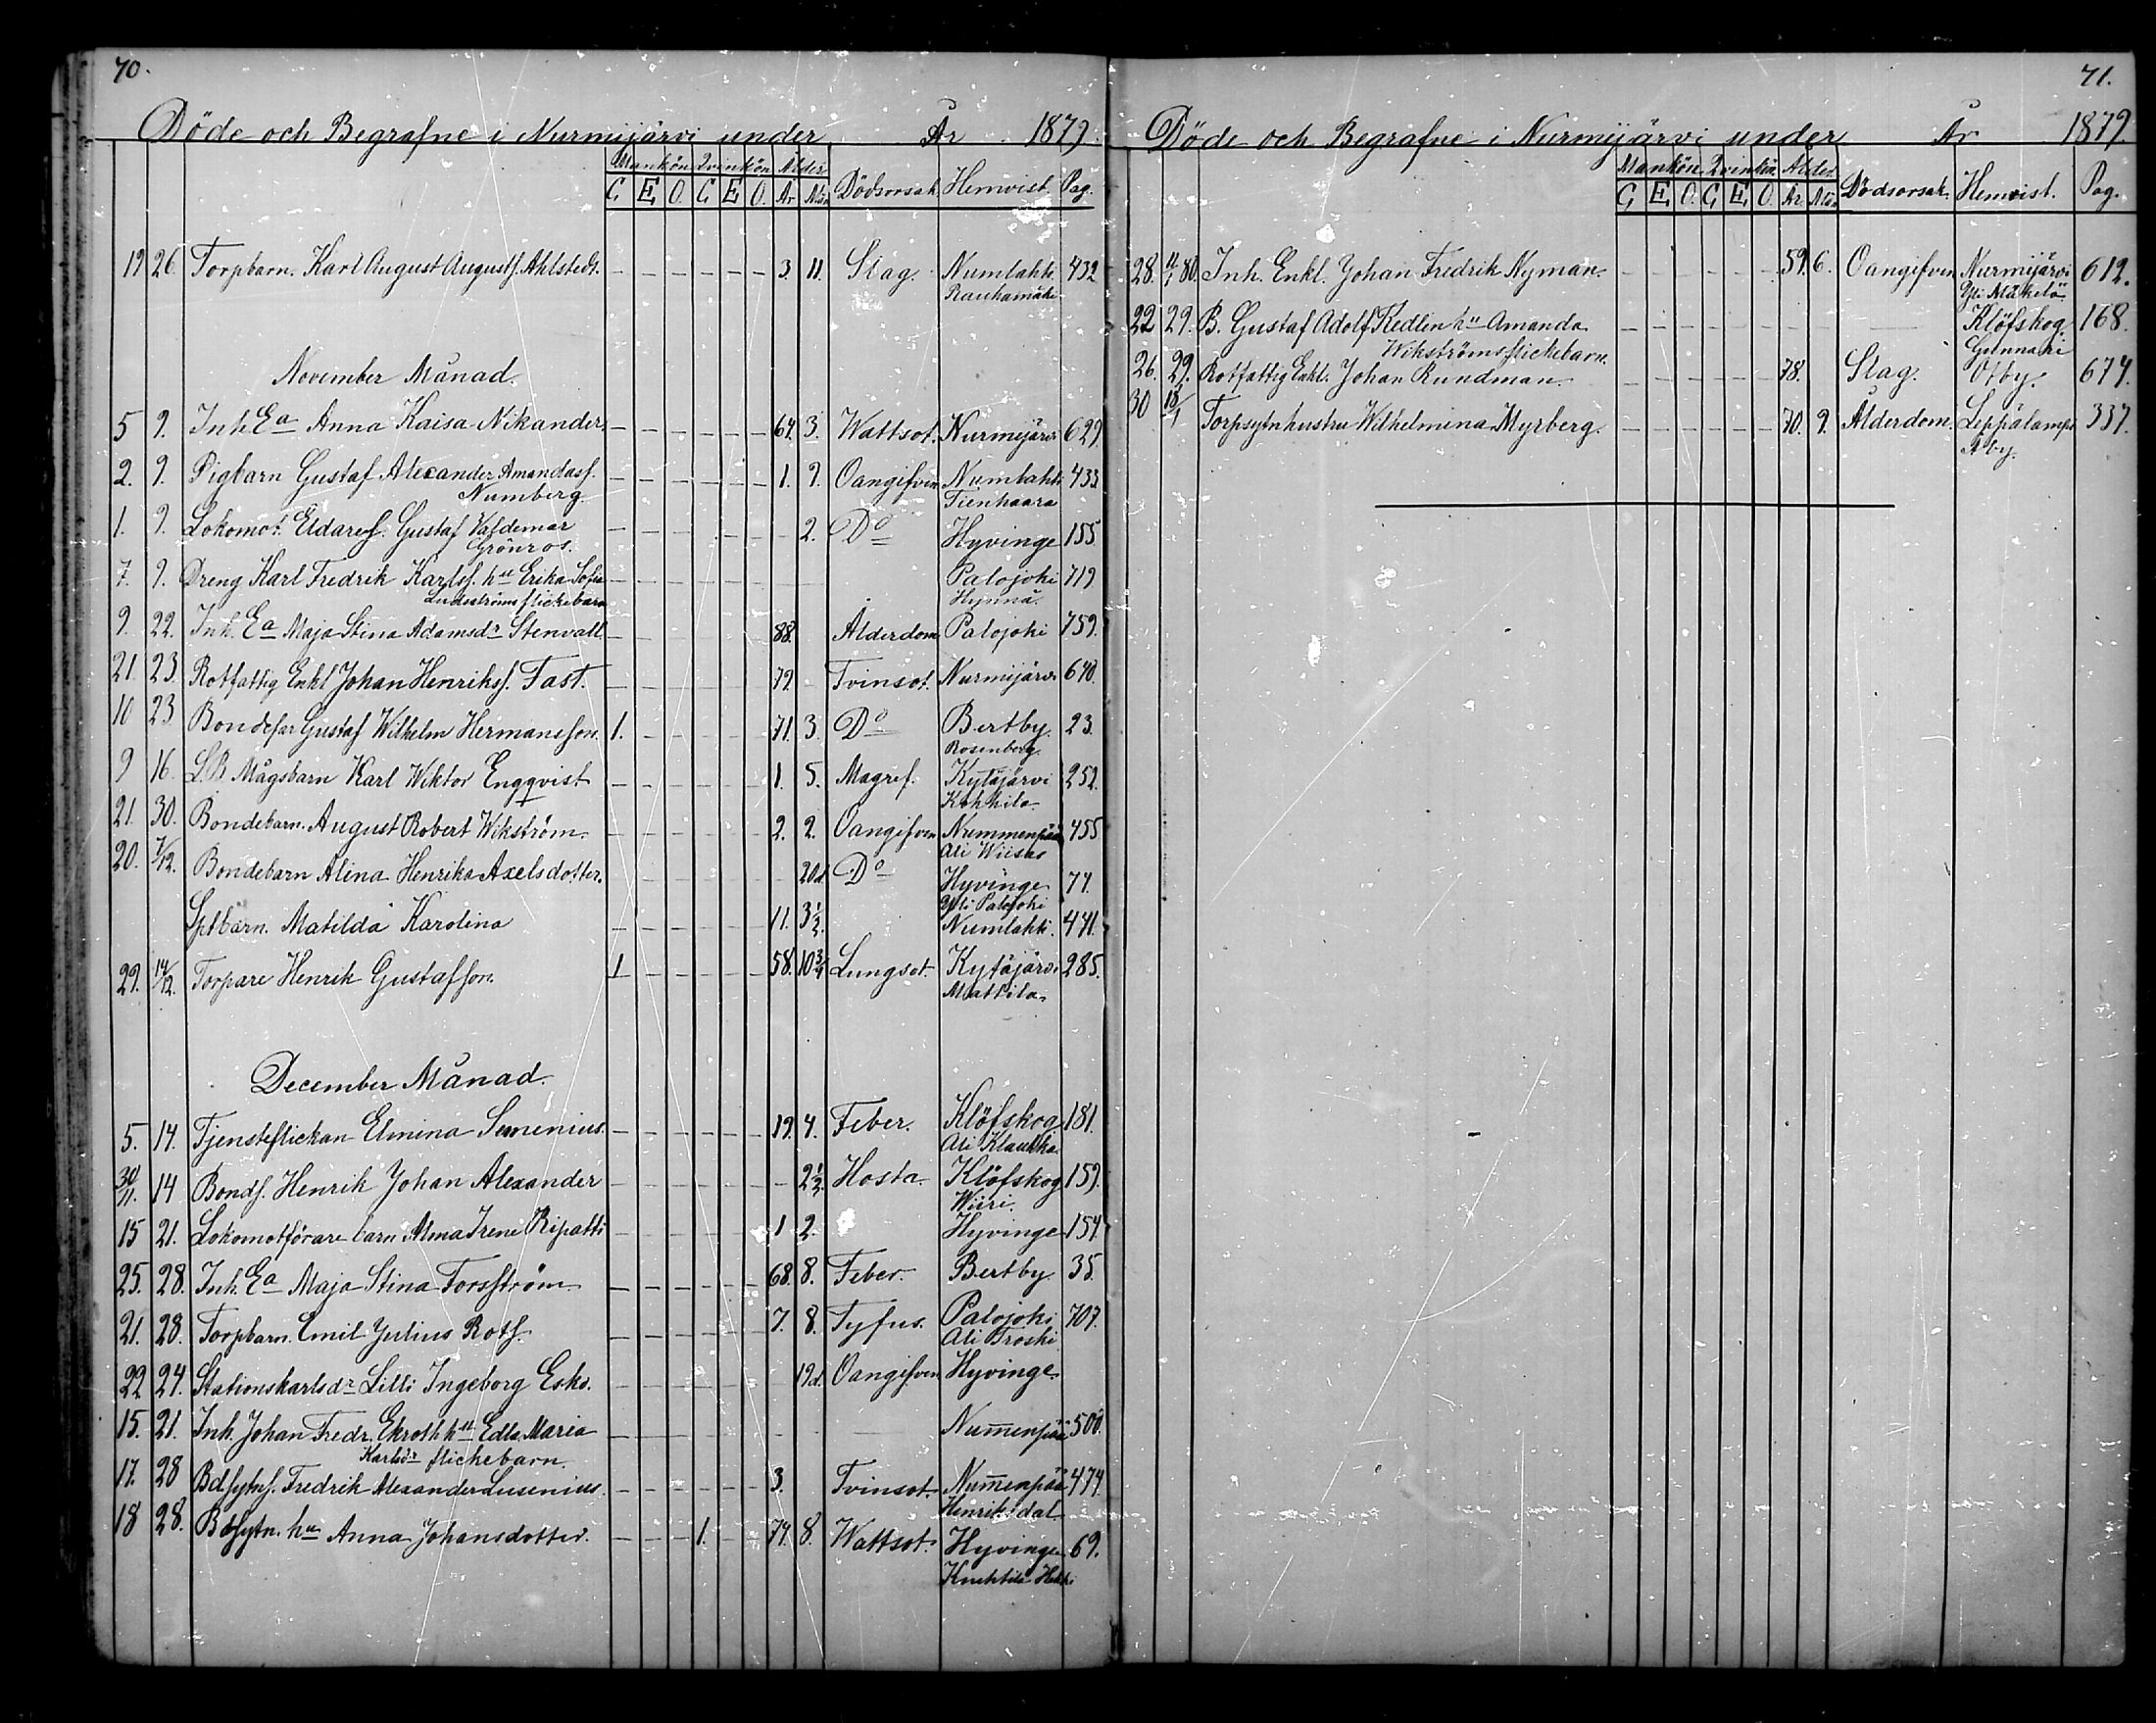 70.
Döde och Begrafne i Nurmijärvi under År 1879.
Mankön Qvinkön Ålder
G E O. G E O. År Mån Dödsorsak Hemvist Pag.
19 26 Torpbarn. Karl August Augustf. Ahlstedt. 3. 11. Slag. Numlahti 432
Rauhamäki
November Månad.
5 9. Inh. Ea Anna Kaisa Nikander. 64. 3. Wattsot. Nurmijärvi 629
2. 9. Pigbarn Gustaf Alexander Amandasf. 1. 9. Oangifven Numlahti 433
Numberg Tienhaara
1. 9. Lokomot. Eldaref. Gustaf Valdemar 2. Do Hyvinge 155
Grönros.
7. 9. Dreng Karl Fredrik Karlsf. hu Erika Sofia Palojoki 719
Lindströms flickebarn Hynnä.
9. 22. Inh. Ea Maja Stina Adamsdr Stenvall 88. Ålderdom Palojoki 759.
21 23. Rotfattig Enkl Johan Henriksf. Fast. 79. Tvinsot. Nurmijärvi 640.
10 23 Bondefar Gustaf Wilhelm Hermansson. 1. 71. 3. Do Bertby 23.
Rosenberg
9 16. L.B Mågsbarn Karl Wiktor Engqvist 1. 5. Magref. Kytäjärvi 252.
Kohkila
21. 30. Bondebarn. August Robert Wikström. 2. 2. Oangifven Nummenpää 455
Ali Wiisas
20. 7/12. Bondebarn Alina Henrika Axelsdotter. 20d. Do Hyvinge 74.
Yli Palojoki
Sptbarn. Matilda Karolina 11. 3½. Numlahti. 441.
29. 14/12. Torpare Henrik Gustafsson. 1 58. 10¾ Lungsot. Kytäjärvi 285.
Mattila
December Månad.
5. 14. Tjensteflickan Elmina Sumenius. 19. 4. Feber. Klöfskog 181.
Ali Klaukka
30/11. 14 Bondf. Henrik Johan Alexander 2½. Hosta Klöfskog 159.
Wiiri.
15 21. Lokomotförare barn Alma Irene Ripatti 1 2. Hyvinge 154
25. 28. Inh. Ea Maja Stina Forsström 68. 8. Feber. Bertby 35.
21. 28. Torpbarn. Emil Julius Roth. 7. 8. Tyfus. Palojoki 707.
Ali Troski
22 24. Stationskarlsdr Lilli Ingeborg Esko. 19d. Oangifven Hyvinge
15. 21. Inh. Johan Fredr. Ekroth hu Edla Maria Numenpää 500.
Karlsdr flickebarn.
17. 28 Bdsytnf. Fredrik Alexander Lusenius. 3. Tvinsot. Numenpää 474
Henriksdal
18 28. Bdsytn. hu Anna Johansdotter. 1. 74. 8. Wattsot. Hyvinge 69.
Knehtilä Heikki
71.
Döde och Begrafne i Nurmijärvi under År 1879.
Mankön Qvinkön Ålder
G E O. G E O. År Mån Dödsorsak. Hemvist. Pag.
28. 11/1 80. Inh. Enkl. Johan Fredrik Nyman. 59. 6. Oangifven Nurmijärvi 612.
Yli Mäkelä
22 29. B. Gustaf Adolf Kedlin hu Amanda Klöfskog 168.
Wikströms flickebarn. Gunnari
26. 29. Rotfattig Enkl. Johan Rundman. 78. Slag. Otby. 674.
30 18/1 Torpsytnhustru Wilhelmina Myrberg. 70. 9. Ålderdom. Leppälampi 337.
Åby.